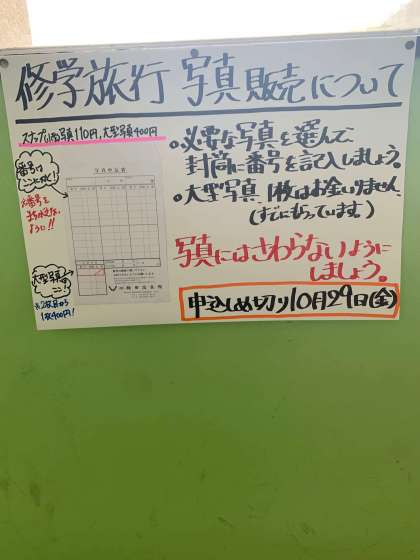 修学旅行 写真販売について
スナップ小型写真110円,大型写真400円
。必要な写真を選んで、
封筒に番号を記入しましょう。
。大型写真、1枚はお金いりません。
(すでにもらっています。)
写真にはさわらないように
しましょう。
申込しめ切り10月29日(金)
番号は
ここに書く!
※番号を
まちがえない
ように!!
写真申込書
大型写真は
ここ!
※2枚目から
1枚400円!